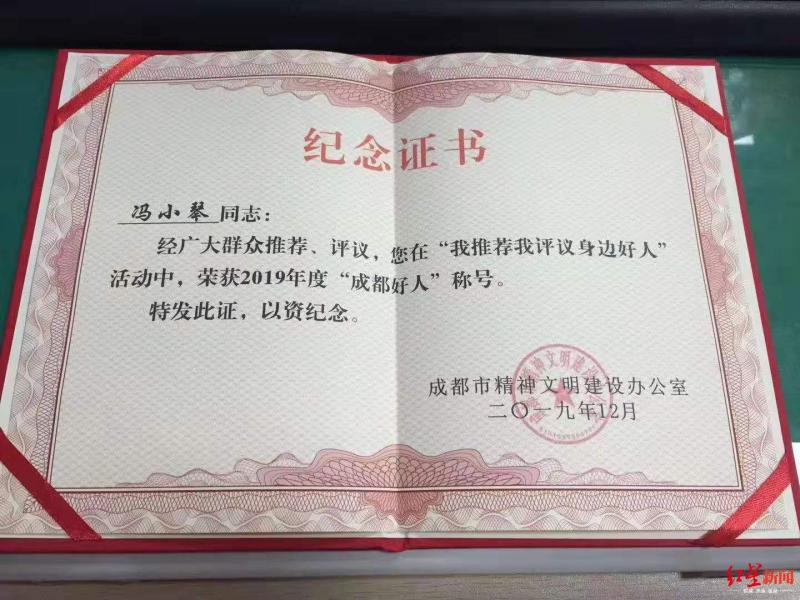 纪念证书
冯小琴 同志：
经广大群众推荐、评议，您在“我推荐我评议身边好人”
活动中，荣获2019年度“成都好人”称号。
特发此证，以资纪念。
成都市精神文明建设办公室
二〇一九年12月
红星新闻